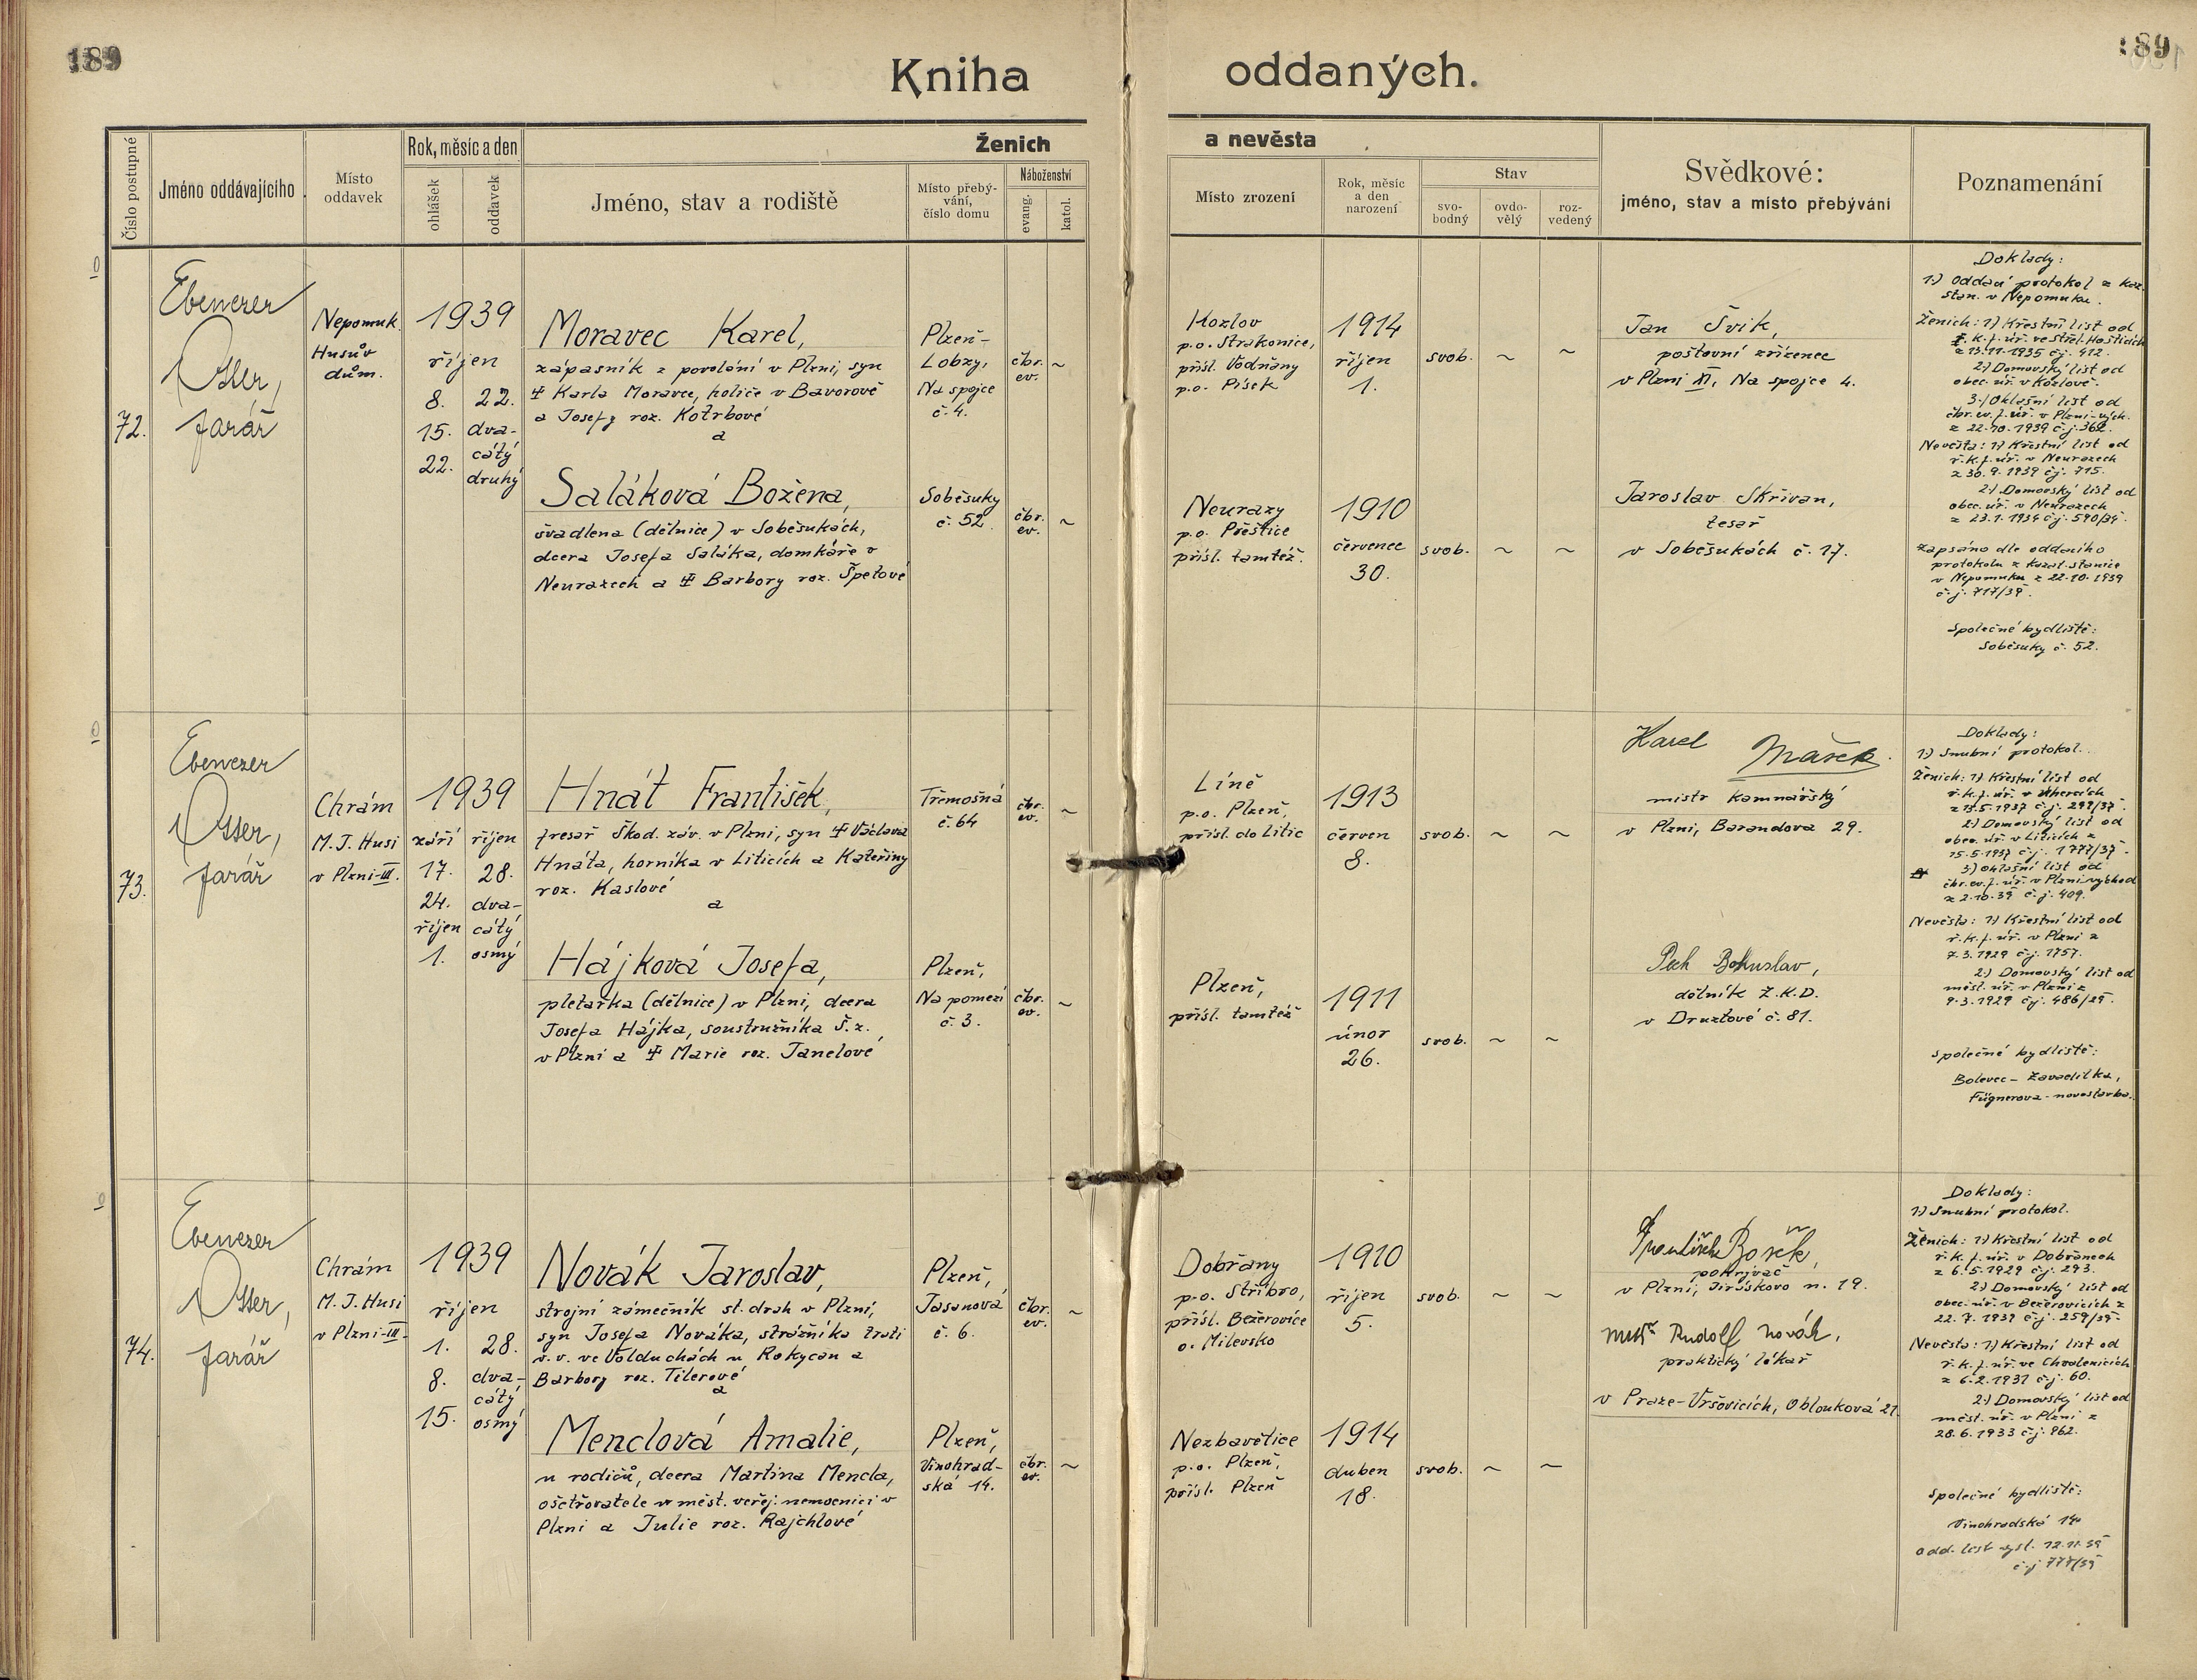 189
189
Kniha oddaných.
Číslo postupné
Jméno oddávajícího
Místo
oddavek
Rok, měsíc a den
ohlášek
oddavek
Ženich
a nevěsta
Jméno, stav a rodiště
Místo přebý-
vání,
číslo domu
Náboženství
evang.
katol.
Místo zrození
Rok, měsíc
a den
narození
Stav
svo-
bodný
ovdo-
vělý
roz-
vedený
Svědkové:
jméno, stav a místo přebývání
Poznamenání
72.
Ebenezer
Otter,
farář
Nepomuk
Husův
dům.
1939
říjen
8.
15.
22.
22.
dva-
cátý
druhý
Moravec Karel,
zápasník z povolání v Plzni, syn
Karla Moravce, holiče v Bavorově
a Josefy roz. Kotrbové
a
Plzeň-
Lobzy,
Na spojce
č. 4.
čbr.
ev.
~
Kozlov
p.o. Strakonice,
přísl. Vodňany
p.o. Písek
1914
říjen
1.
svob.
~
~
Jan Švik,
poštovní zřízenec
v Plzni XI, Na spojce 4.
Saláková Božena,
švadlena (dělnice) v Soběsukách,
dcera Josefa Saláka, domkáře v
Neurazech a Barbory roz. Špetové
Soběsuky
č. 52
čbr.
ev.
~
Neurazy
p.o. Přeštice
přísl. tamtéž.
1910
červenec
30.
svob.
~
~
Jaroslav Skřivan,
tesař
v Soběsukách č. 17.
Doklady:
1.) Oddací protokol z kaz.
stan. v Nepomuku.
Ženich: 1) Křestní list od
ř. k. f. úř. ve Střel. Hošticích
z 13.11.1935 č.j. 412.
2.) Domovský list od
obec. úř. v Kozlově.
3.) Ohlašní list od
čbr. ev. f. úř. v Plzni-vých.
z 22.10.1939 č.j. 362.
Nevěsta: 1) Křestní list od
ř. k. f. úř. v Neurazech
z 30.9.1939 č.j. 715.
2.) Domovský list od
obec. úř. v Neurazech
z 23.1.1934 č.j. 590/34.
Zapsáno dle oddacího
protokolu z kazat. stanice
v Nepomuku z 22.10.1939
č.j. 717/39.
Společné bydliště:
Soběsuky č. 52.
73.
Ebenezer
Otter,
farář
Chrám
M. J. Husi
v Plzni-III.
1939
září
17.
24.
říjen
1.
říjen
28.
dva-
cátý
osmý
Hnát František,
fresař Škod. záv. v Plzni, syn Václava
Hnáta, horníka v Liticích a Kateřiny
roz. Kaslové
a
Třemošná
č. 64
čbr.
ev.
~
Líně
p.o. Plzeň,
přísl. do Litic
1913
červen
8.
svob.
~
~
Karel Mašek
mistr kamnářský
v Plzni, Barandova 29.
Hájková Josefa,
pletařka (dělnice) v Plzni, dcera
Josefa Hájka, soustružníka Š.z.
v Plzni a Marie roz. Janelové
Plzeň,
Na pomezí
č. 3.
čbr.
ev.
~
Plzeň,
přísl. tamtéž
1911
únor
26.
svob.
~
~
Pech Bohuslav,
dělník Z.K.D.
v Druztové č. 81.
Doklady:
1.) Snubní protokol.
Ženich: 1) Křestní list od
ř. k. f. úř. v Úhercích
z 13.5.1937 č.j. 299/37.
2.) Domovský list od
obec. úř. v Liticích z
15.5.1937 č.j. 1777/37.
3.) Ohlašní list od
čbr. ev. f. úř. v Plzni-východ
z 2.10.39 č.j. 409.
Nevěsta: 1) Křestní list od
ř. k. f. úř. v Plzni z
7.3.1929 č.j. 1757.
2.) Domovský list od
měst. úř. v Plzni z
9.3.1929 č.j. 486/29.
Společné bydliště:
Bolevec - Zavadilka,
Fügnerova - novostavba.
74.
Ebenezer
Otter,
farář
Chrám
M. J. Husi
v Plzni-III.
1939
říjen
1.
8.
15.
28.
dva-
cátý
osmý
Novák Jaroslav,
strojní zámečník st. drah v Plzni,
syn Josefa Nováka, strážníka trati
v.v. ve Volduchách u Rokycan a
Barbory roz. Tilerové
a
Plzeň,
Jasanová
č. 6.
čbr.
ev.
~
Dobřany
p.o. Stříbro,
přísl. Bežerovice
o. Milevsko
1910
říjen
5.
svob.
~
~
František Bosík,
pokrývač
v Plzni, Jiráskovo n. 19.
Menclová Amalie,
u rodičů, dcera Martina Mencla,
ošetřovatele v měst. veřej. nemocnici v
Plzni a Julie roz. Rajchlové
Plzeň,
Vinohrad-
ská 14.
čbr.
ev.
~
Nezbavětice
p.o. Plzeň,
přísl. Plzeň
1914
duben
18.
svob.
~
~
MUDr Rudolf Novák,
praktický lékař
v Praze-Vršovicích, Oblouková 21.
Doklady:
1.) Snubní protokol.
Ženich: 1.) Křestní list od
ř. k. f. úř. v Dobřanech
z 6.5.1929 č.j. 293.
2.) Domovský list od
obec. úř. v Bežerovicích z
22.7.1939 č.j. 259/39.
Nevěsta: 1) Křestní list od
ř. k. f. úř. ve Chválenicích
z 6.2.1931 č.j. 60.
2.) Domovský list od
měst. úř. v Plzni z
28.6.1933 č.j. 962.
Společné bydliště:
Vinohradská 14.
Odd. list vyd. 12.11.39
č.j. 777/39